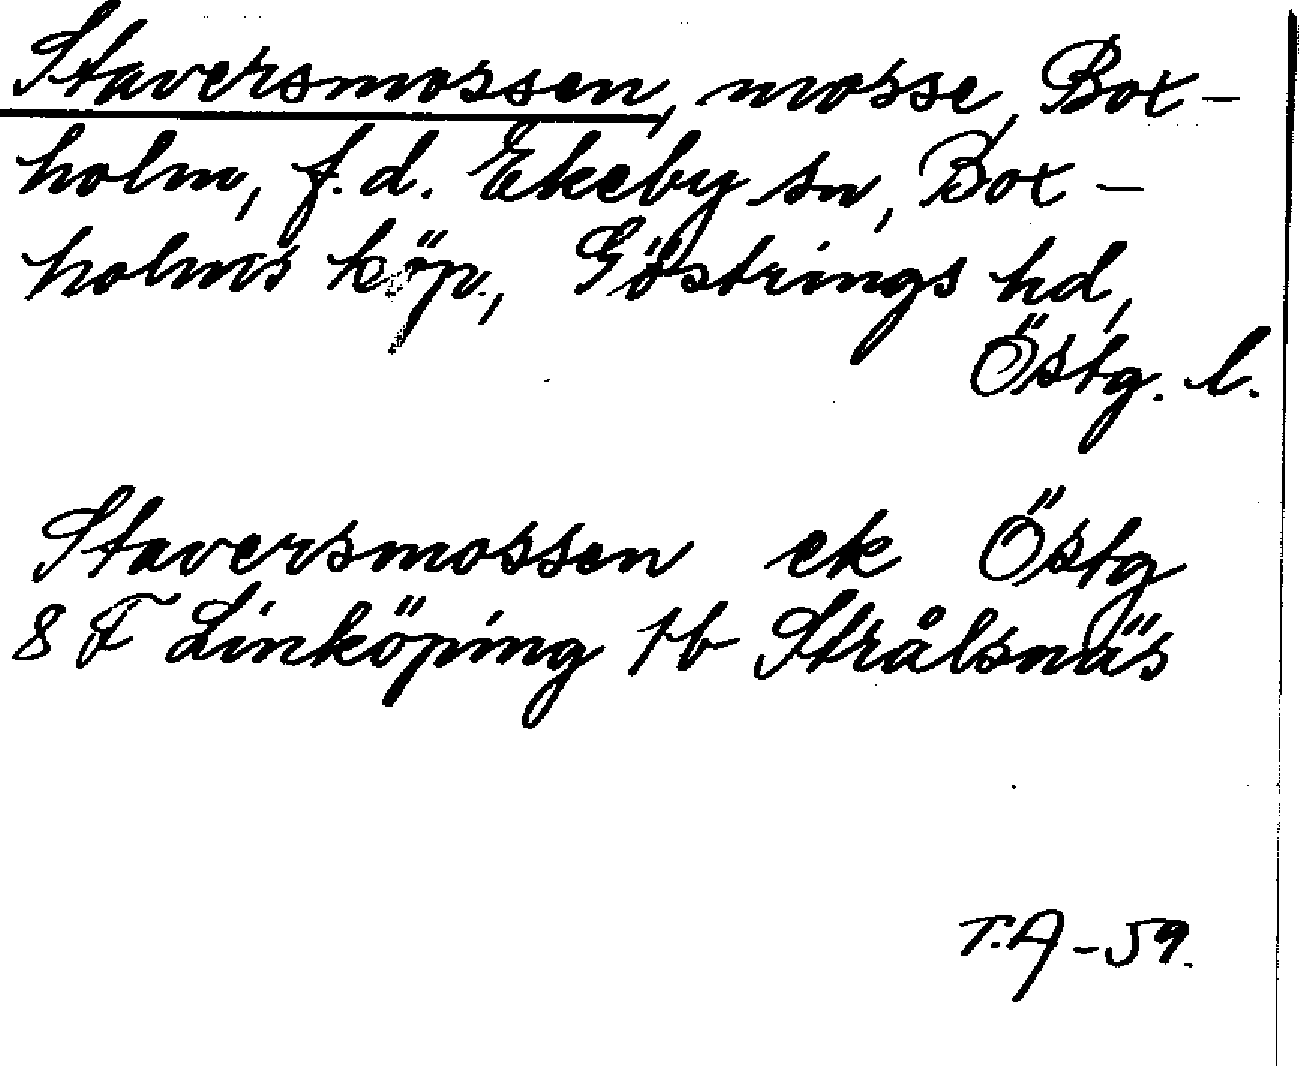 Staversmossen, mosse, Box-
holm, f.d. Ekeby sn, Box-
holms köp., Göstrings hd,
Östg. l.
Staversmossen ek Östg
8 F Linköping 1b Strålsnäs
T.A -59.